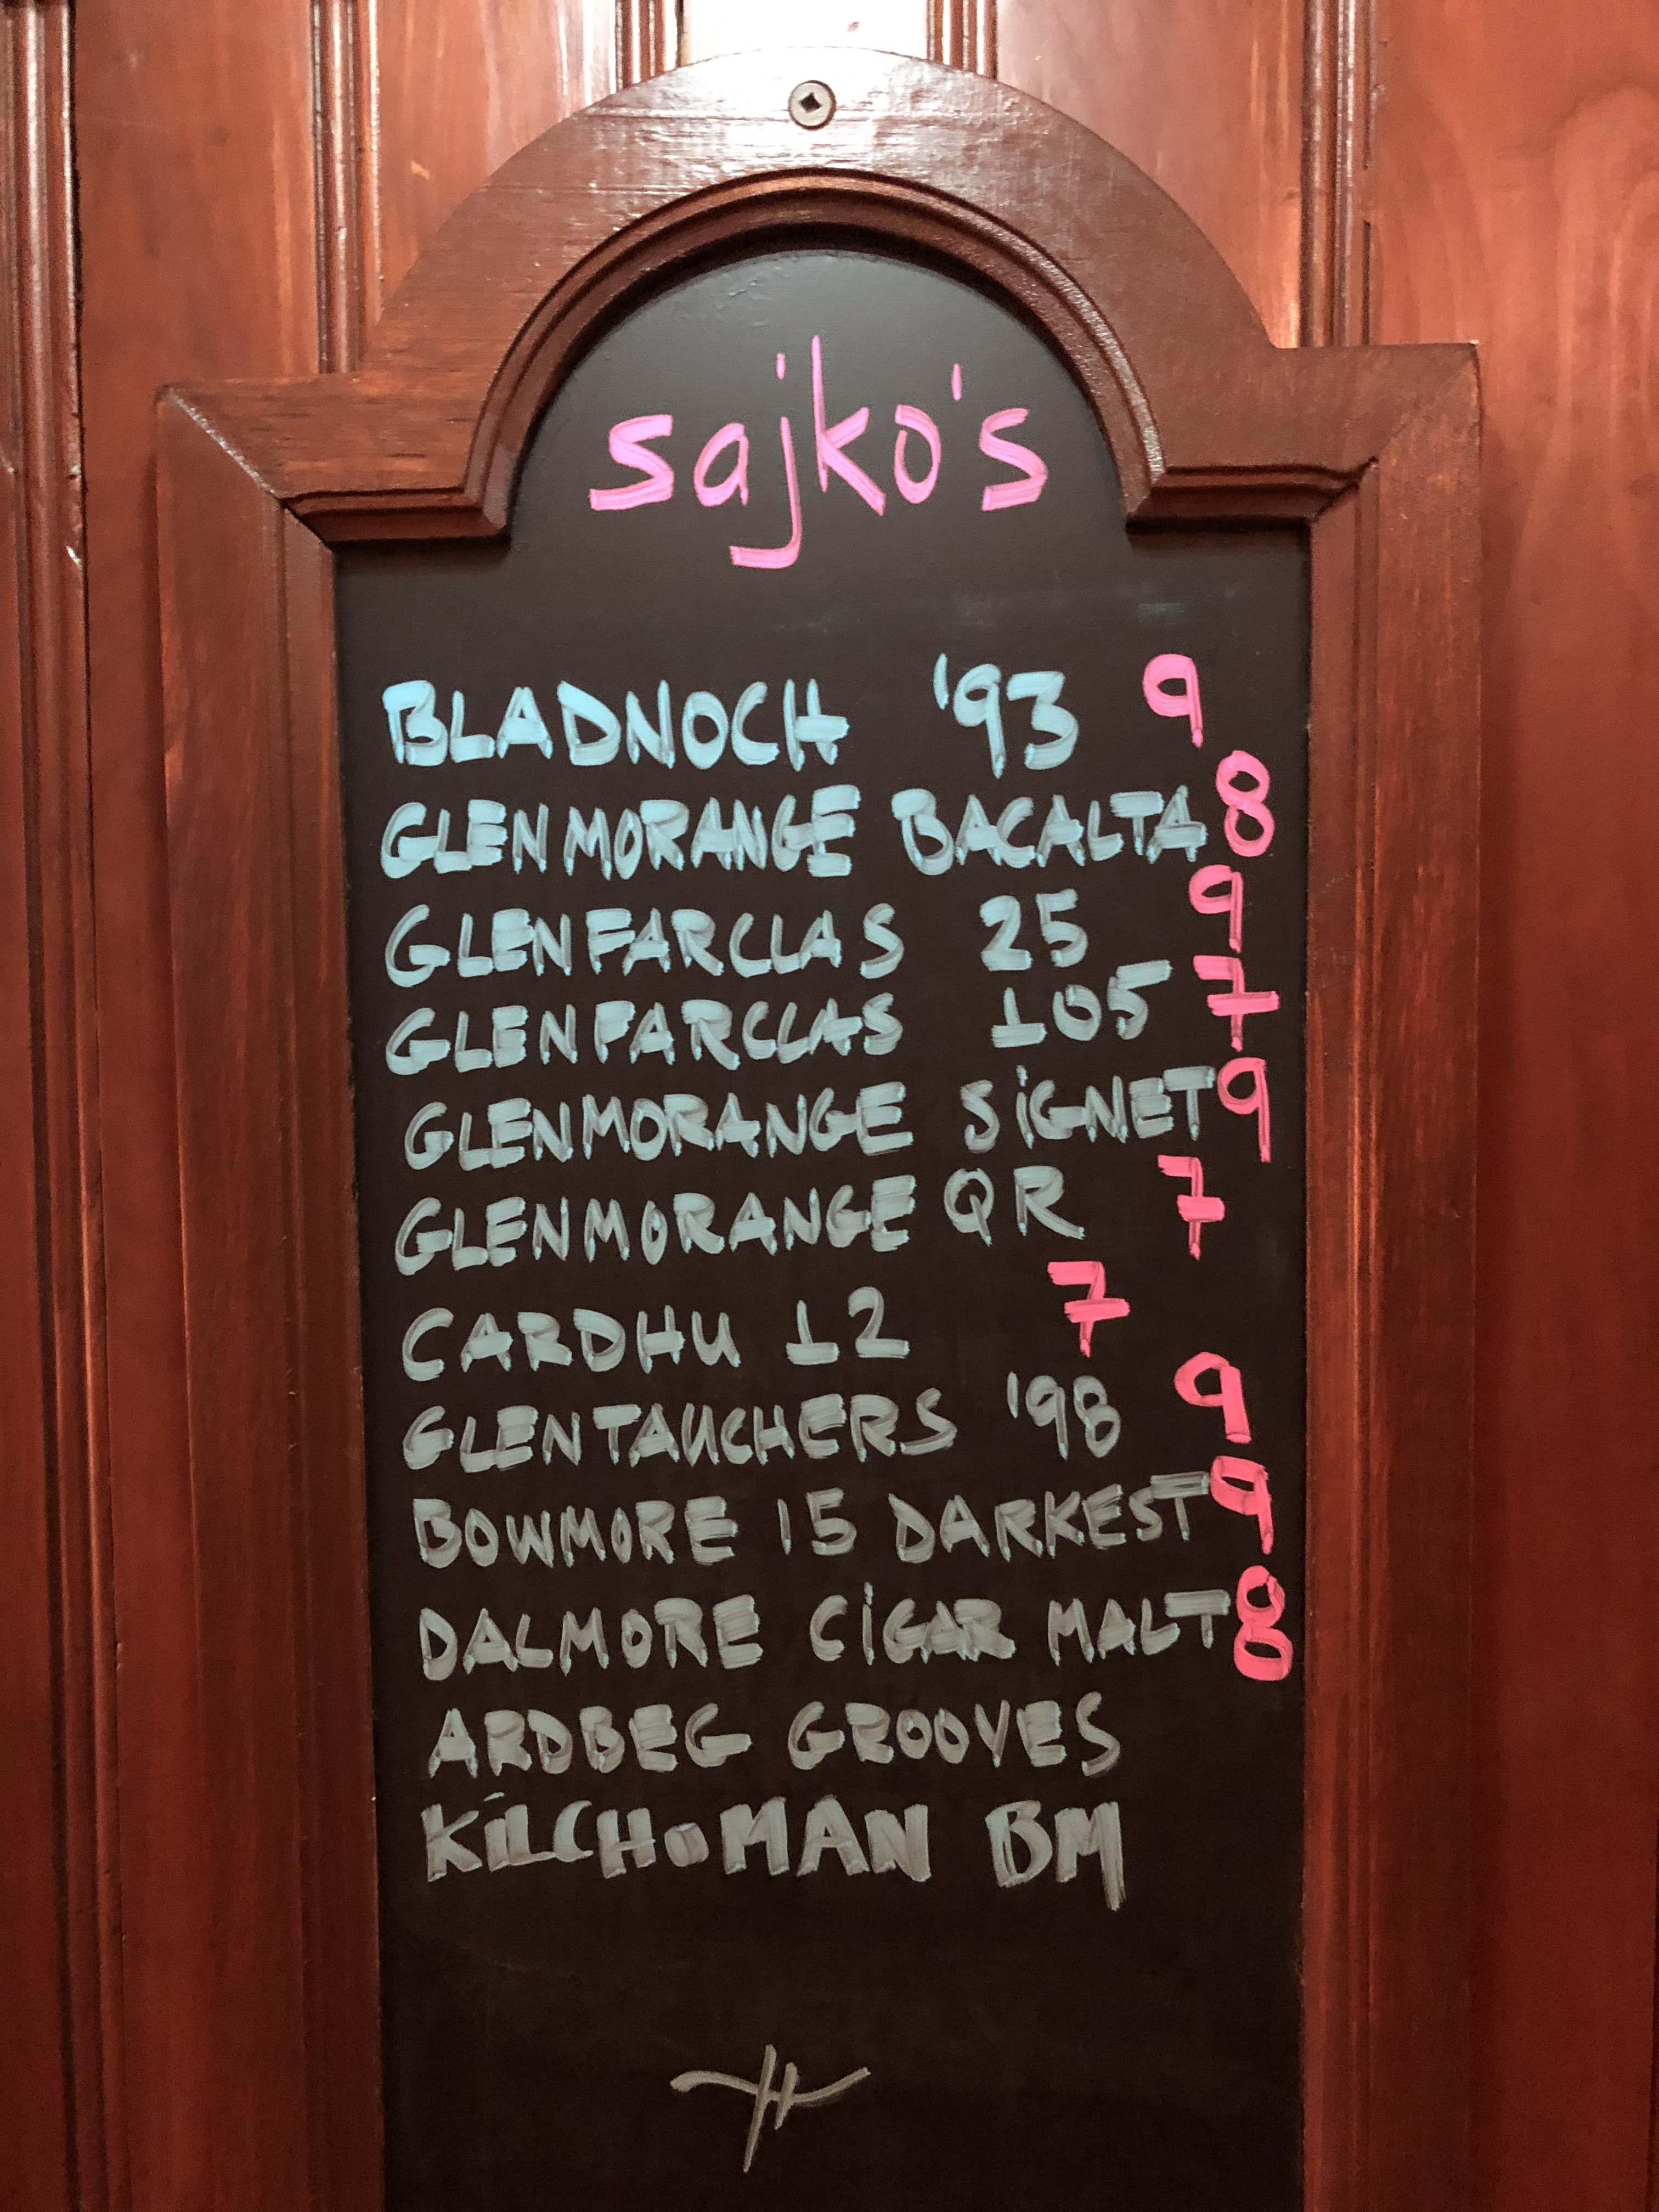 sajko's
BLADNOCH '93 9
GLENMORANGE BACALTA 8
GLENFARCLAS 25 9
GLENFARCLAS 105 7
GLENMORANGE SiGNET 9
GLENMORANGE QR 7
CARDHU 12 7
GLENTAUCHERS '98 9
BOWMORE 15 DARKEST 9
DALMORE CiGAR MALT 8
ARDBEG GROOVES
KiLCHoMAN BM